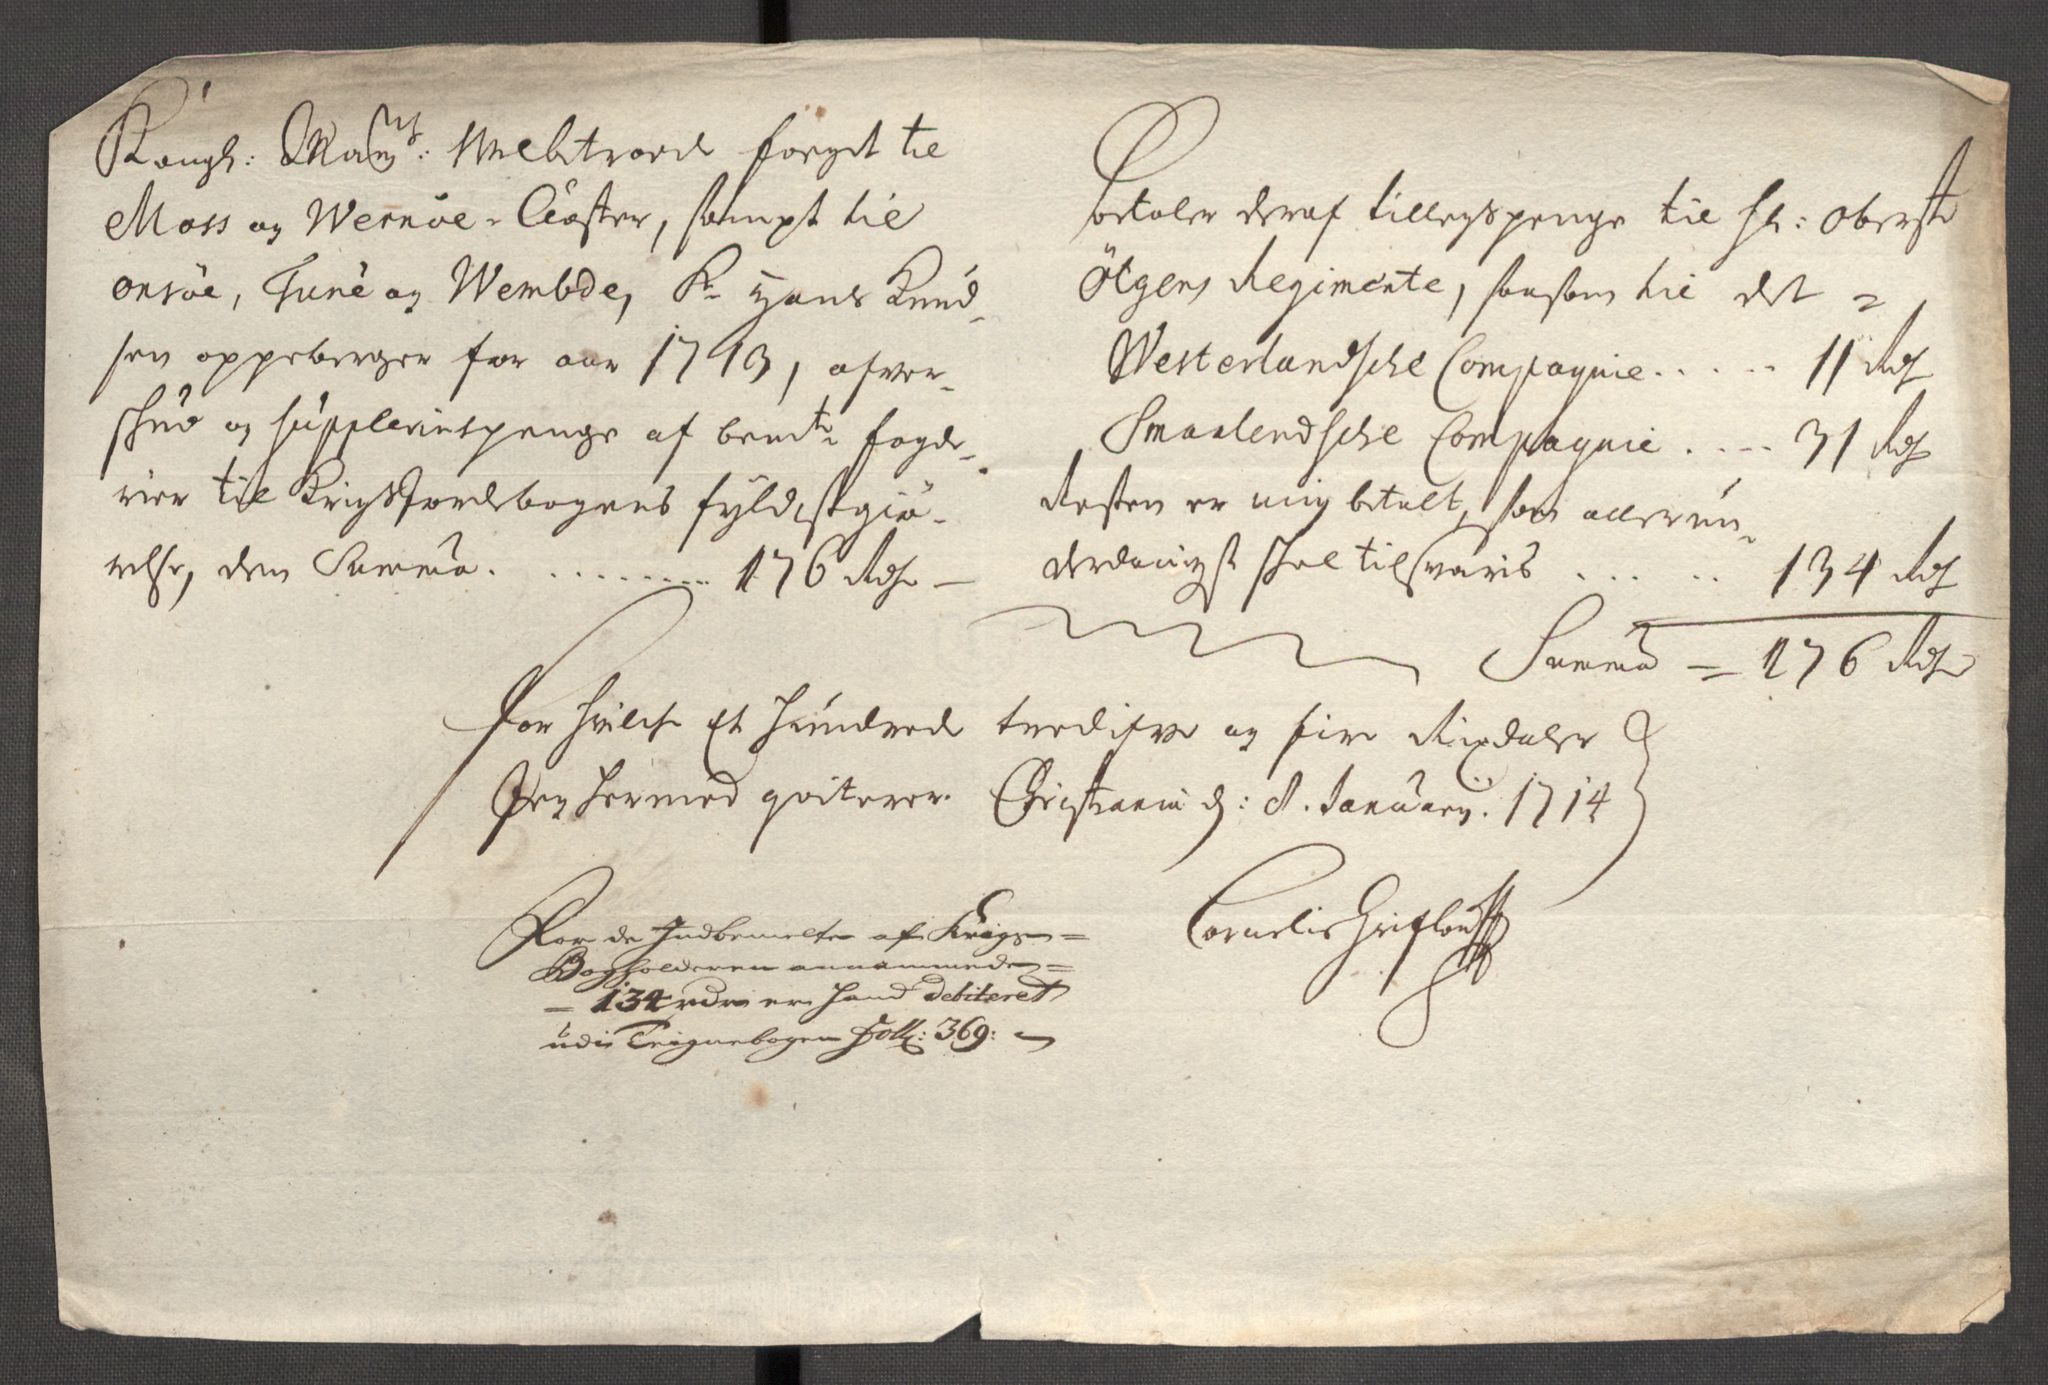 Kongl: Maÿts: Welbtroede foeget til
Moss og Wernöe-Closter, sampt til
onsöe, Tune og Wembde, Sr Hans Knud-
sen oppeberger for aar 1713, af
og supplerings penge af bemte fogde-
rier til Krigsførdsbogens fyldistgiö-
relse, den Summa. ........ 176 Rdr —
Betaler deraf tillegspenge til Hr: Oberste
Ötgens Regimente, saasom til det =
Westerlandsche Compagnie..... 11 Rdr
Smaalendsche Compagnie .... 31 Rdr
Resten er mig betalt, som allerun-
derdanigst schal tilsvaris ..... 134 Rdr
Summa = 176 Rdr
For hvilche Et Hundrede tredifve og fire Rixdaler
Jeg hermed qviterer. Christania d: 8. January. 1714
Cornelis Grifloú
For de Indbemelte af Krigs=
Bogholderen annammede=
= 134 rdr er hand debiteret
udi Teignebogen Foll: 369: